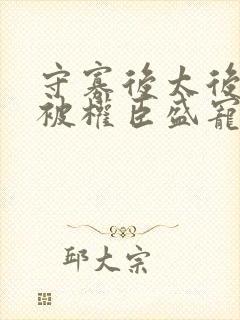 守寡後太後
被權臣盛寵
邱大宗